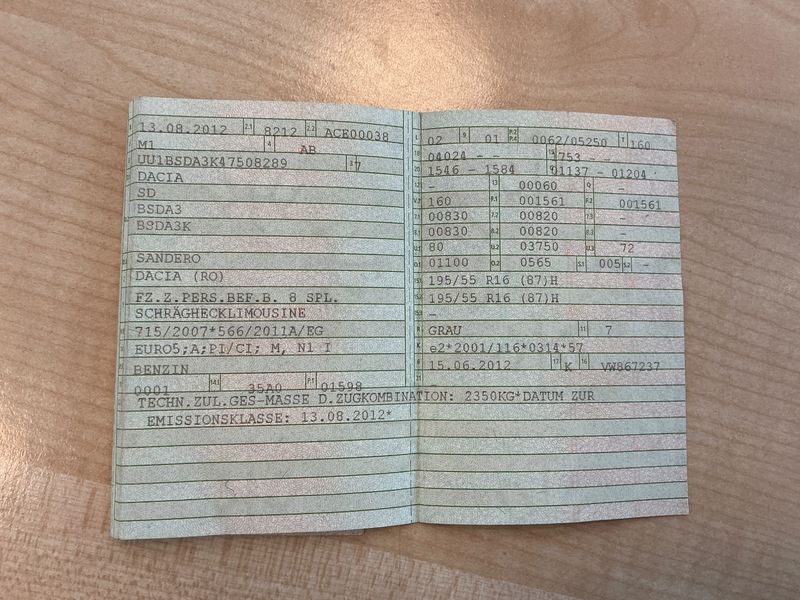 13.08.2012 2.1 8212 2.2 ACE00038
M1 4 AB
UU1BSDA3K47508289 3 7
DACIA
SD
BSDA3
BSDA3K
SANDERO
DACIA (RO)
FZ.Z.PERS.BEF.B. 8 SPL.
SCHRÄGHECKLIMOUSINE
715/2007*566/2011A/EG
EURO5;A;PI/CI; M, N1 I
BENZIN
0001 14.1 35A0 P.1 01598
L 02 9 01 P.2 P.4 0062/05250 T 160
18 04024 - - 19 1753 - -
20 1546 - 1584 G 01137 - 01204
12 - 13 00060 Q -
V.7 160 F.1 001561 F.2 001561
7.1 00830 7.2 00820 7.3 -
8.1 00830 8.2 00820 8.3 -
U.1 80 U.2 03750 U.3 72
O.1 01100 O.2 0565 S.1 005 S.2 -
15.1 195/55 R16 (87)H
15.2 195/55 R16 (87)H
15.3 -
R GRAU 11 7
K e2*2001/116*0314*57
6 15.06.2012 17 K 16 VW867237
21 -
TECHN.ZUL.GES-MASSE D.ZUGKOMBINATION: 2350KG*DATUM ZUR
EMISSIONSKLASSE: 13.08.2012*